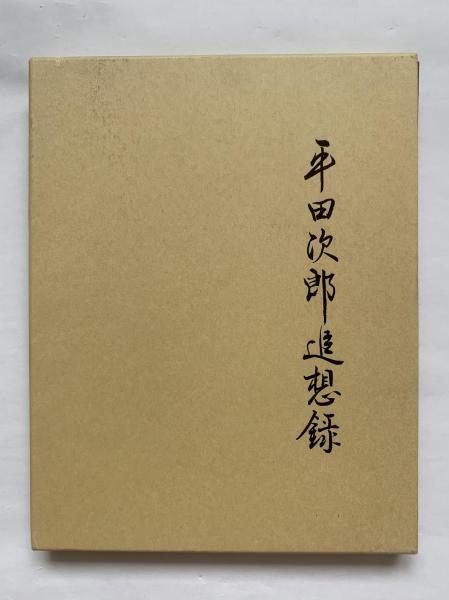 平田次郎追想録